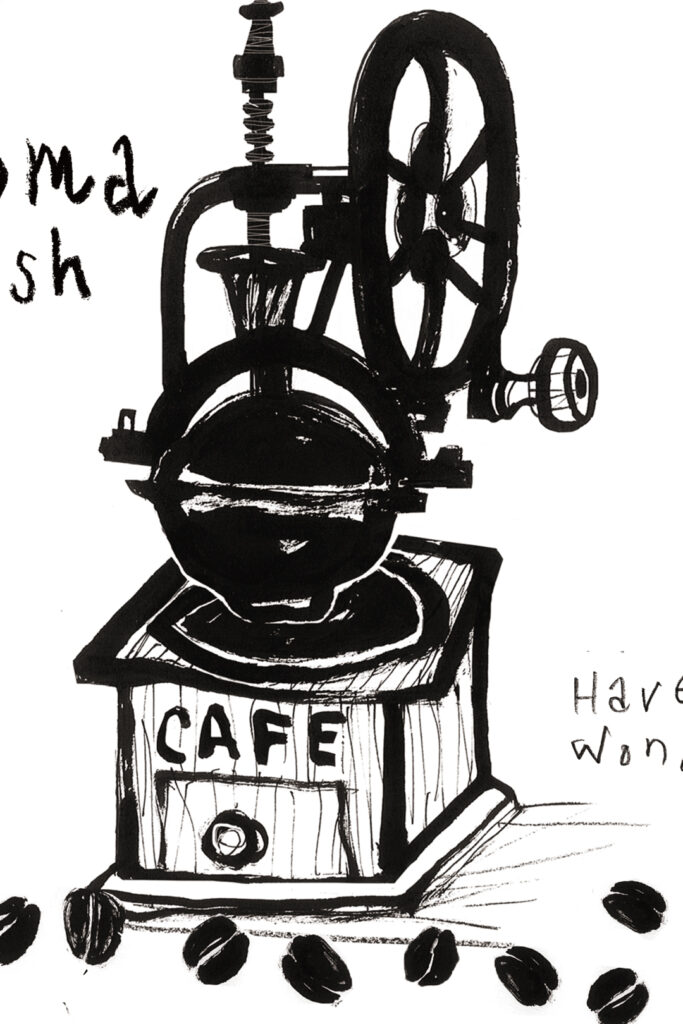 oma
sh
CAFE
Have
Won